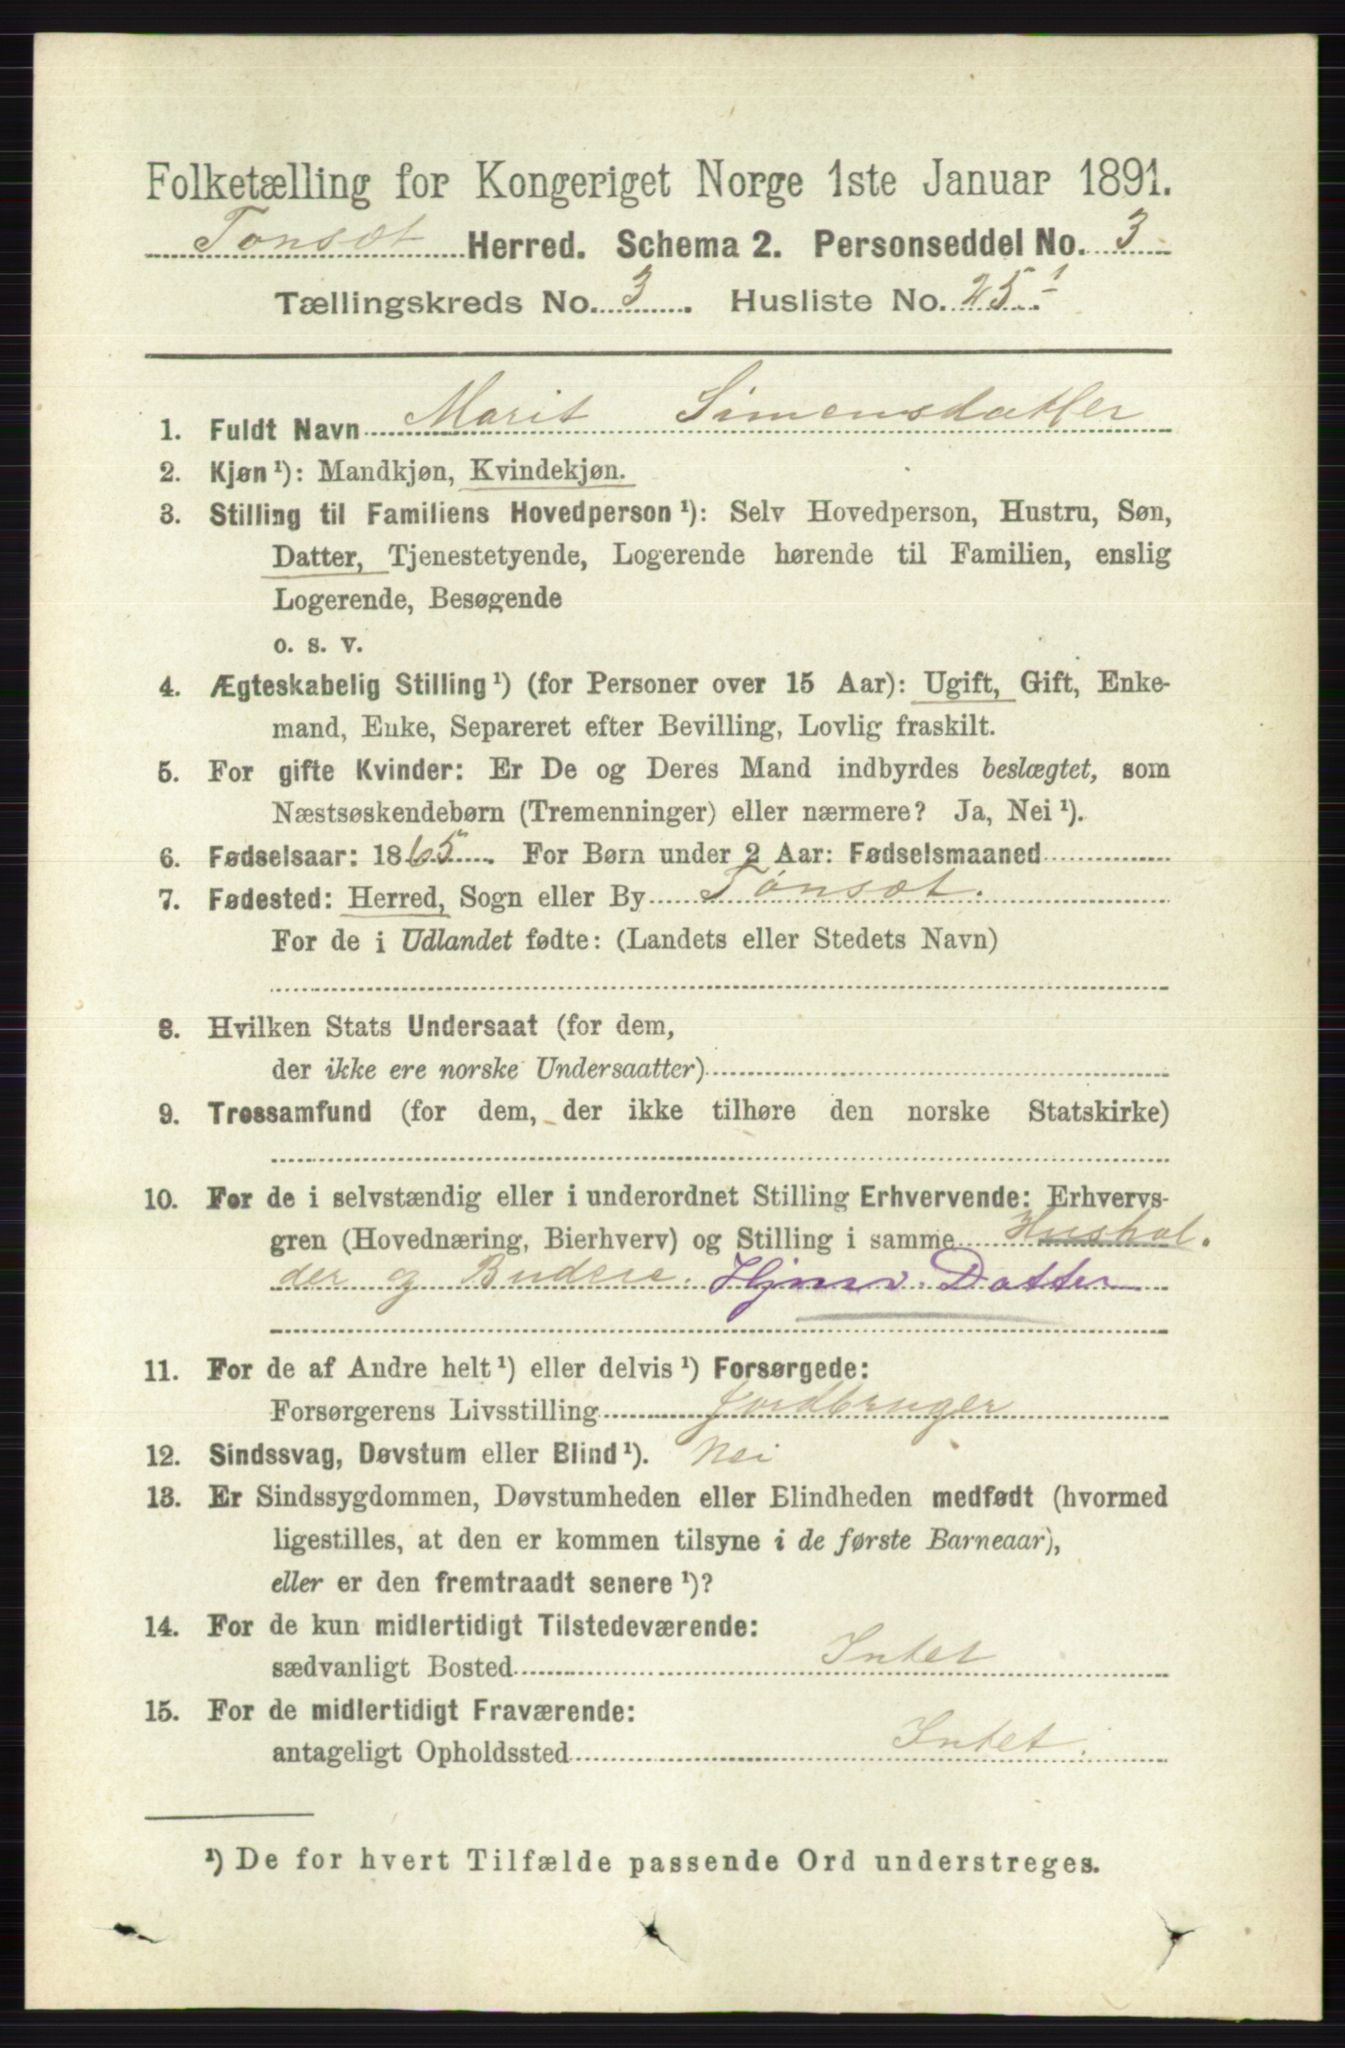 Folketælling for Kongeriget Norge 1ste Januar 1891.
Tønsæt Herred. Schema 2. Personseddel No. 3
Tællingskreds No. 3. Husliste No. 25 1
1. Fuldt Navn Marit Simensdatter
2. Kjøn ¹): Mandkjøn, Kvindekjøn.
3. Stilling til Familiens Hovedperson ¹): Selv Hovedperson, Hustru, Søn,
Datter, Tjenestetyende, Logerende hørende til Familien, enslig
Logerende, Besøgende
o. s. v.
4. Ægteskabelig Stilling ¹) (for Personer over 15 Aar): Ugift, Gift, Enke-
mand, Enke, Separeret efter Bevilling, Lovlig fraskilt.
5. For gifte Kvinder: Er De og Deres Mand indbyrdes beslægtet, som
Næstsøskendebørn (Tremenninger) eller nærmere? Ja, Nei ¹).
6. Fødselsaar: 1865. For Børn under 2 Aar: Fødselsmaaned
7. Fødested: Herred, Sogn eller By Tønsæt.
For de i Udlandet fødte: (Landets eller Stedets Navn)
8. Hvilken Stats Undersaat (for dem,
der ikke ere norske Undersaatter)
9. Trossamfund (for dem, der ikke tilhøre den norske Statskirke)
10. For de i selvstændig eller i underordnet Stilling Erhvervende: Erhvervs-
gren (Hovednæring, Bierhverv) og Stilling i samme Hushol.
der og Budeie. Hjmv. Datter
11. For de af Andre helt ¹) eller delvis ¹) Forsørgede:
Forsørgerens Livsstilling Jordbruger
12. Sindssvag, Døvstum eller Blind ¹). Nei
13. Er Sindssygdommen, Døvstumheden eller Blindheden medfødt (hvormed
ligestilles, at den er kommen tilsyne i de første Barneaar),
eller er den fremtraadt senere ¹)?
14. For de kun midlertidigt Tilstedeværende:
sædvanligt Bosted Intet
15. For de midlertidigt Fraværende:
antageligt Opholdssted Intet.
¹) De for hvert Tilfælde passende Ord understreges.